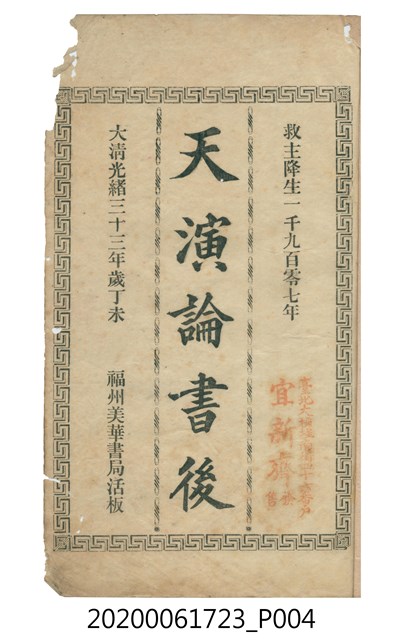 救主降生一千九百零七年
天演論書後
大清光緒三十三年歲丁未 福州美華書局活板
宜新齋
20200061723_P004